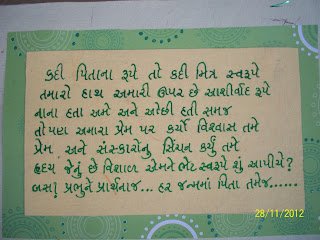 કદી પિતાના રૂપે તો કદી મિત્ર સ્વરૂપે
તમારો હાથ અમારી ઉપર છે આશીર્વાદ રૂપે
નાના હતા અમે અને ઓછી હતી સમજ
તોપણ અમારા પ્રેમ પર કર્યો વિશ્વાસ તમે
પ્રેમ અને સંસ્કારોનું સિંચન કર્યું તમે
હૃદય જેનું છે વિશાળ એમને ભેટ સ્વરૂપે શું આપીયે?
બસ! પ્રભુને પ્રાર્થનાજ... હર જન્મમાં પિતા તમેજ......
28/11/2012